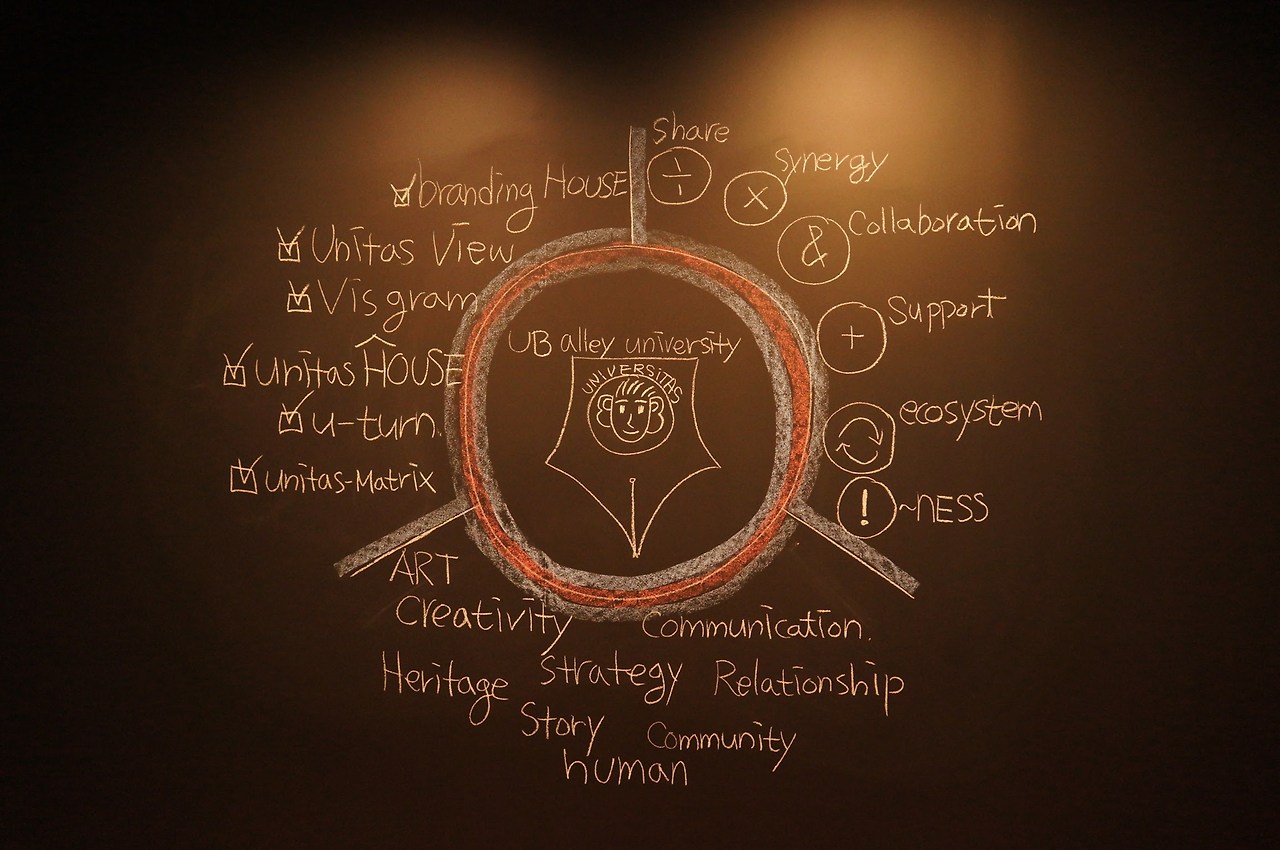 branding HOUSE
Unitas View
Vis gram
unitas HOUSE
u-turn.
unitas-Matrix
Share
÷
Synergy
×
Collaboration
&
Support
+
ecosystem
! ~NESS
UB alley university
UNIVERSITAS
ART
Creativity Communication.
Heritage Strategy Relationship
Story Community
human